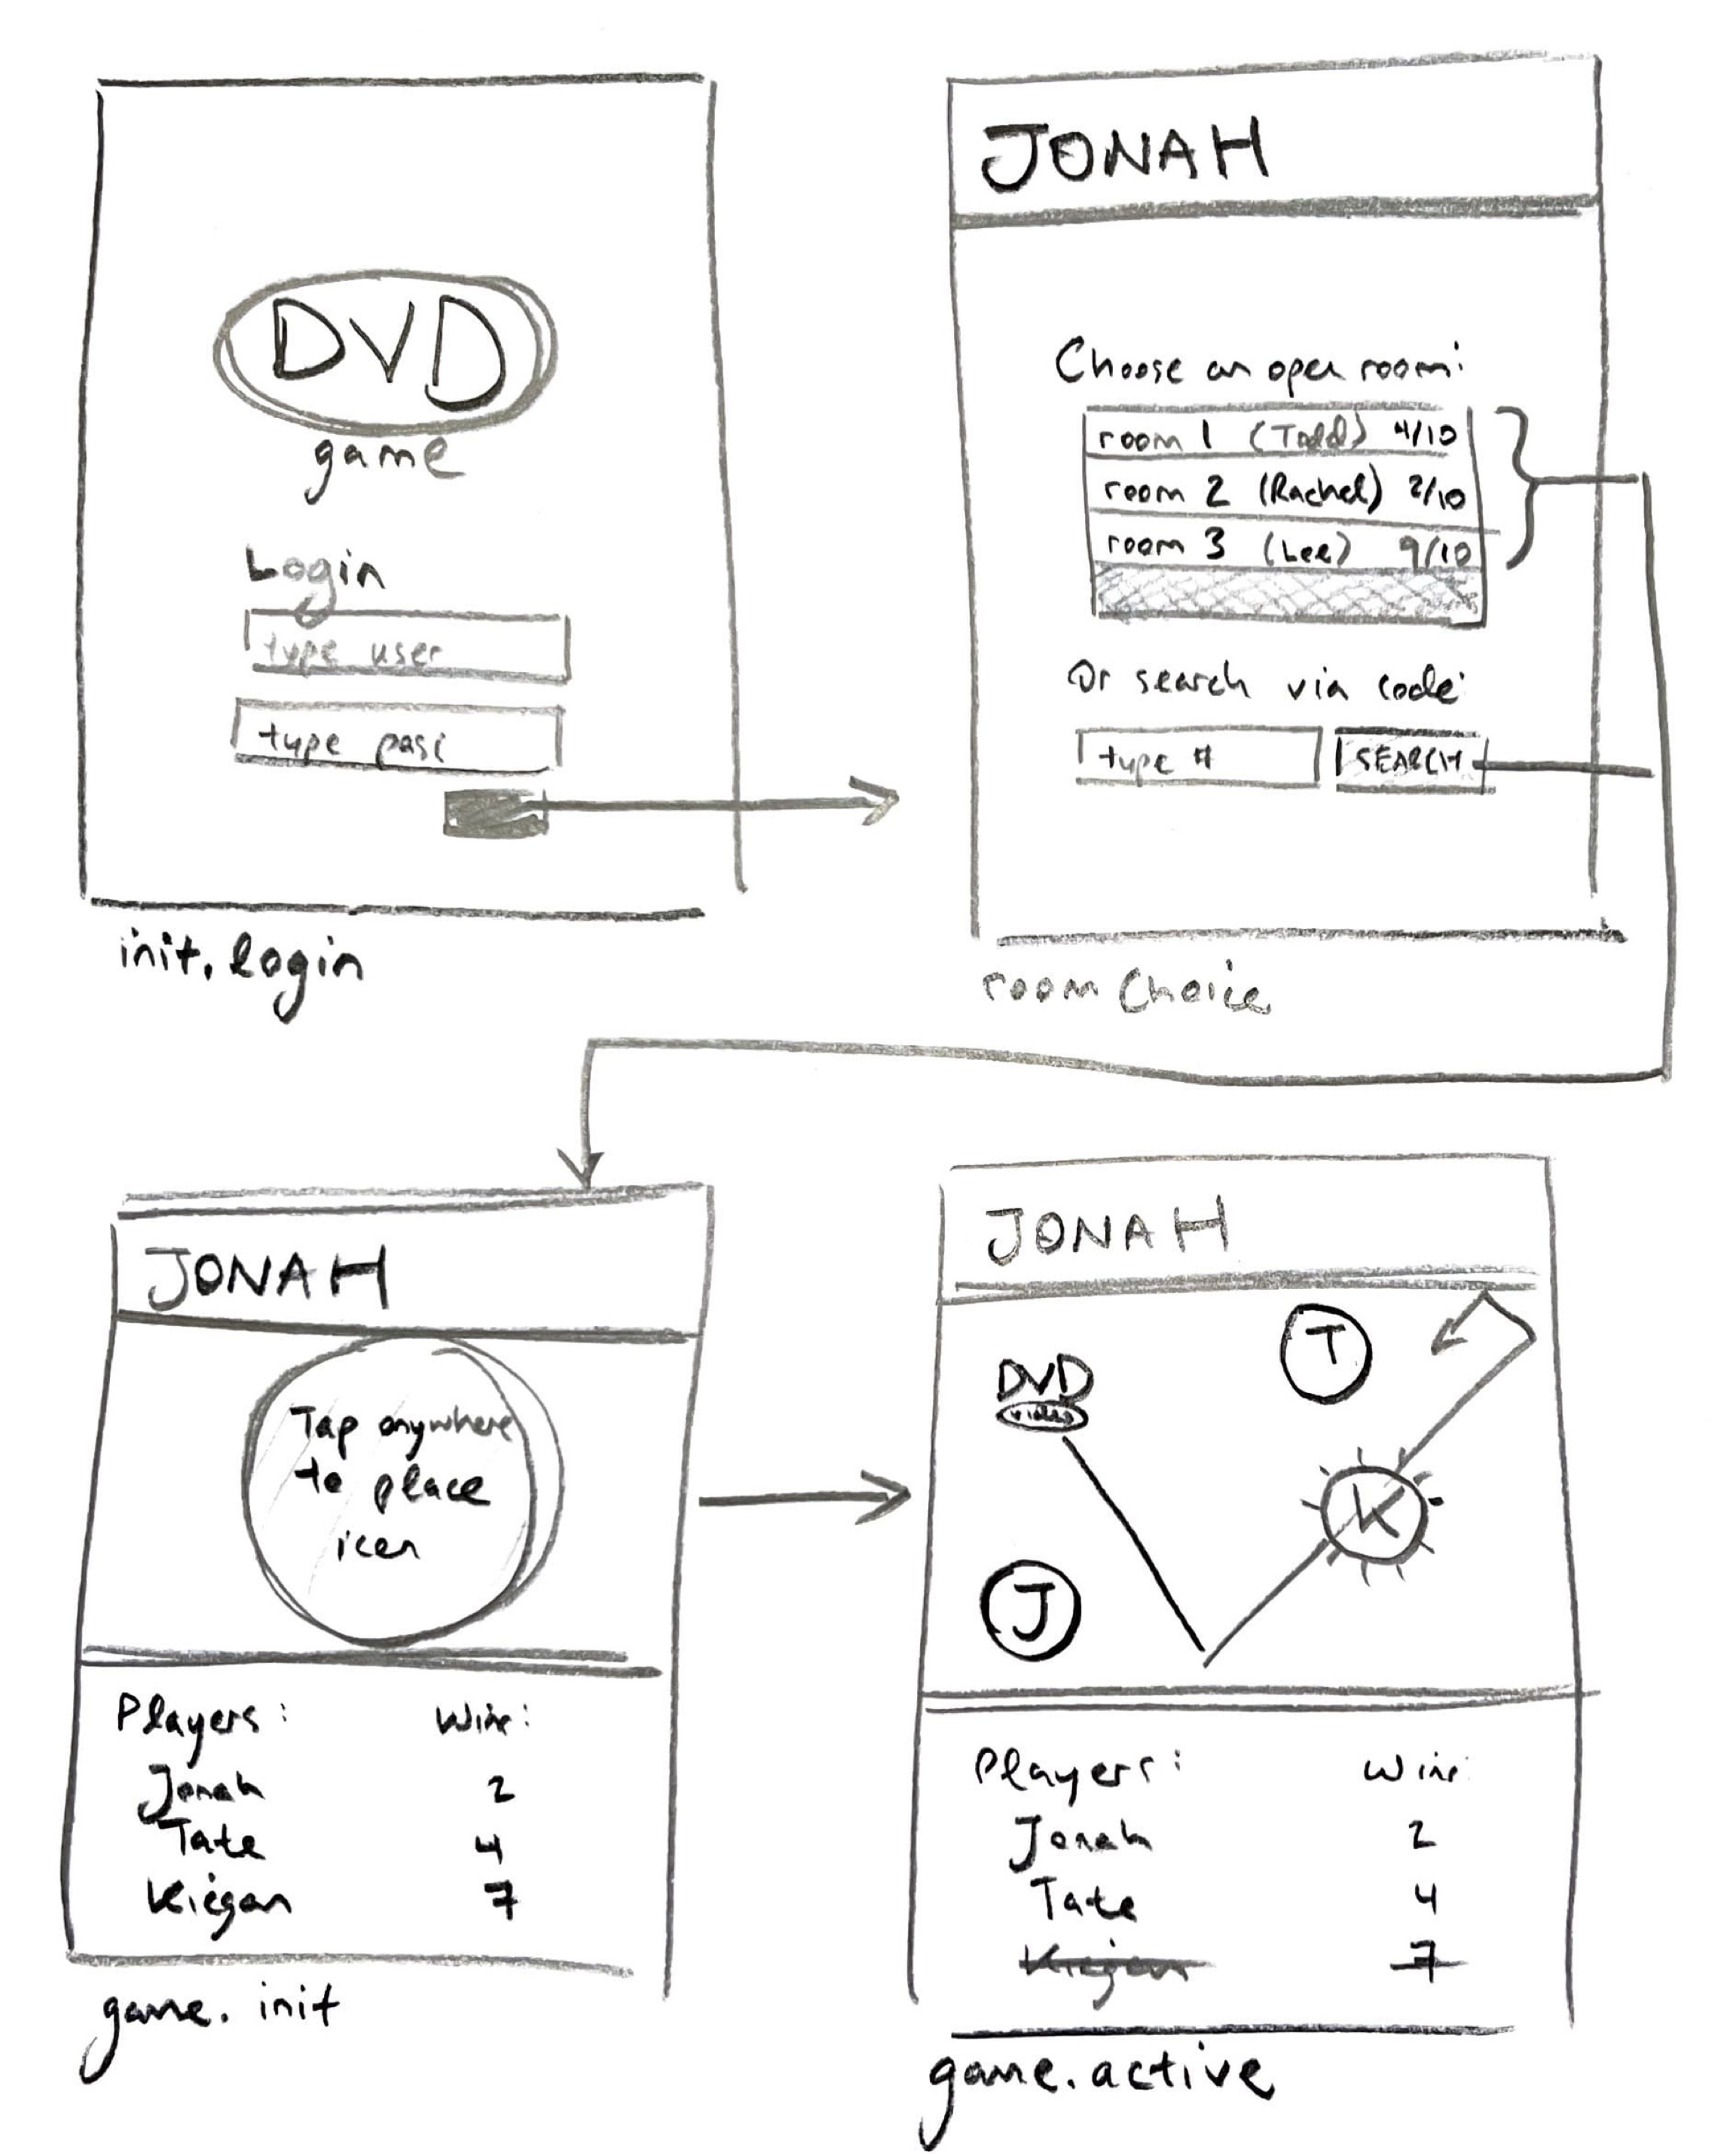 DVD
game
Login
type user
type pass
init.login
JONAH
Choose an open room:
room 1 (Todd) 4/10
room 2 (Rachel) 2/10
room 3 (Lee) 9/10
Or search via code:
type #
SEARCH
room Choice
JONAH
Tap anywhere
to place
icon
Players: Wins:
Jonah 2
Tate 4
Kiegan 7
game.init
JONAH
DVD
video
T
K
J
Players: Wins:
Jonah 2
Tate 4
Kiegan 7
game.active